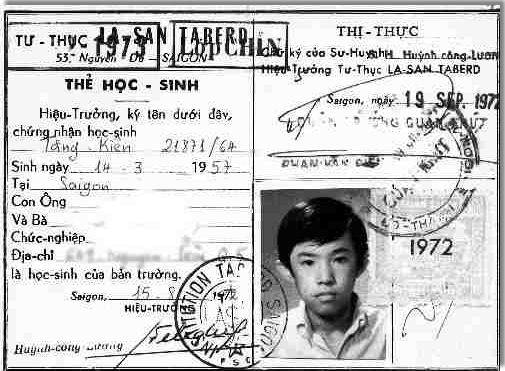 TƯ - THỤC LA-SAN TABERD
1973 LỚP CHÍN
53, Nguyễn - Du - SAIGON
THẺ HỌC - SINH
Hiệu-Trưởng, ký tên dưới đây,
chứng nhận học-sinh
Tăng Kiên 21871/6A
Sinh ngày 14 - 3 1957
Tại Saigon
Con Ông
Và Bà
Chức-nghiệp
Địa-chỉ
là học-sinh của bản trường.
Saigon, 15-8 1972
HIỆU-TRƯỞNG
Huỳnh-công-Lương
THỊ-THỰC
ký của Sư-Huynh Huỳnh công-LƯƠNG
Hiệu-Trưởng Tư-Thục LA-SAN TABERD
Saigon, ngày 19 SEP. 1972
QUẬN
1972
INSTITUTION TABERD
SAIGON